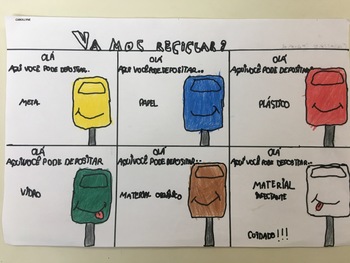 VAMOS RECICLAR?
OLÁ
AQUI VOCÊ PODE DEPOSITAR..
METAL
OLÁ
AQUI VOCÊ PODE DEPOSITAR..
PAPEL
OLÁ
AQUI VOCÊ PODE DEPOSITAR..
PLÁSTICO
OLÁ
AQUI VOCÊ PODE DEPOSITAR
VIDRO
OLÁ
AQUI VOCÊ PODE DEPOSITAR..
MATERIAL ORGÂNICO
OLÁ
AQUI VOCÊ PODE DEPOSITAR..
MATERIAL
INFECTANTE
CUIDADO!!!